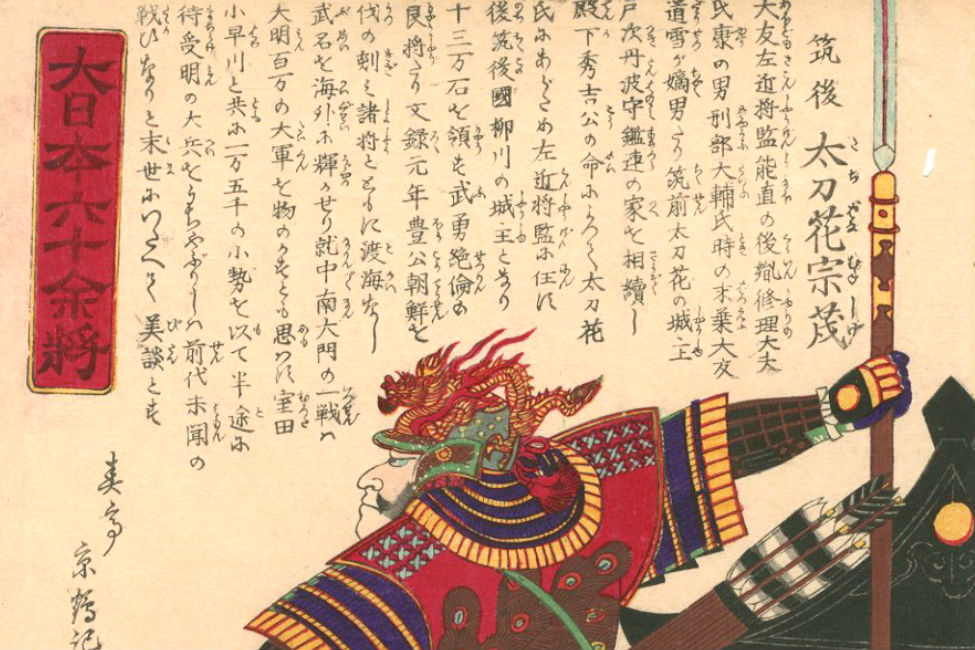 大日本六十余将
筑後 太刀花宗茂
大友左近将監能直の後胤修理大夫
氏康の男刑部大輔氏時の末葉大友
道雪が嫡男たり筑前太刀花の城主
戸次丹波守鑑連の家を相續し
殿下秀吉公の命によつて太刀花
氏にあらため左近将監に任に
後筑後國柳川の城主となり
十三万石を領す武勇絶倫の
良将たり文録元年豊公朝鮮を
伐の剋諸将とともに渡海なし
武名を海外に輝かせり就中南大門の一戦ハ
大明百万の大軍を物のかずとも思ハに室田
小早川と共に一万五千の小勢を以て半途に
待受明の大兵をうちやぶりしハ前代未聞の
戦ひなりと末世にいたるまで美談とす
春亭
京鶴記